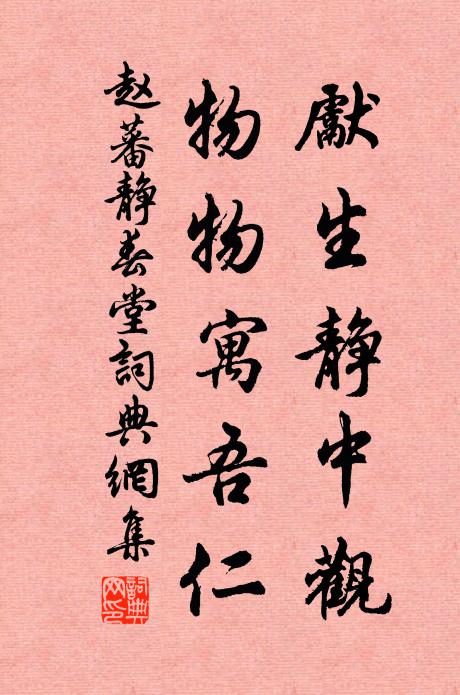 獻生静中觀
物物寓吾仁
赵蕃静春堂詞典網集
詞典网印